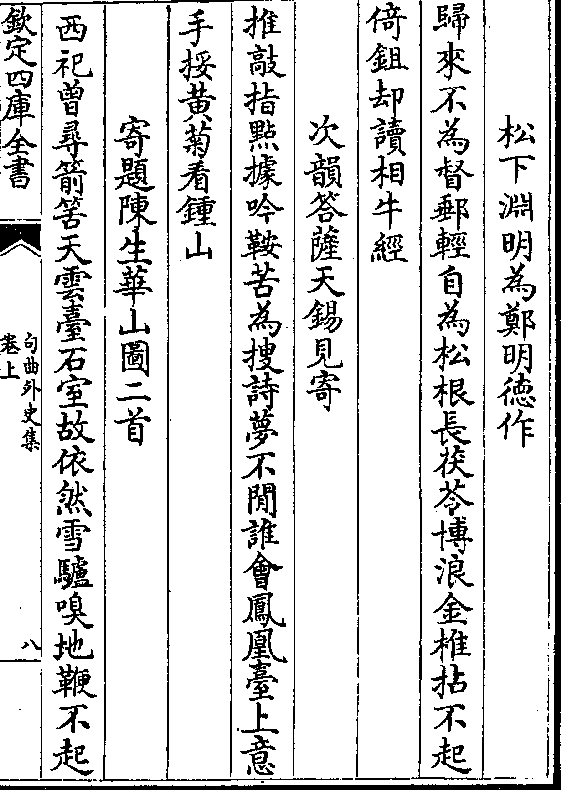 松下淵明為鄭明徳作
歸來不為督郵輕自為松根長茯苓博浪金椎拈不起
倚鉏却讀相牛經
次韻答薩天錫見寄
推敲指㸃據吟鞍苦為捜詩夢不閒誰會鳳凰臺上意
手挼黄菊看鍾山
寄題陳生華山圖二首
西祀曽尋箭筈天雲臺石室故依然雪驢嗅地鞭不起
欽定四庫全書
句曲外史集
卷上
八